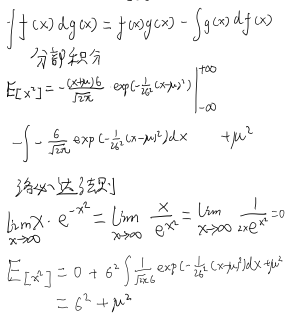 ∫f(x)dg(x) = f(x)g(x) - ∫g(x)df(x)
分部积分
E[x²] = -(x+μ)6/√2π exp(-1/26²(x-μ)²)|+∞ -∞
-∫-6/√2π exp(-1/26²(x-μ)²)dx +μ²
洛必达法则
lim x→∞ x·e^-x² = lim x→∞ x/e^x² = lim x→∞ 1/2xe^x² = 0
E[x²] = 0 + 6²∫1/√2π6 exp(-1/26²(x-μ)²)dx+μ²
= 6² + μ²